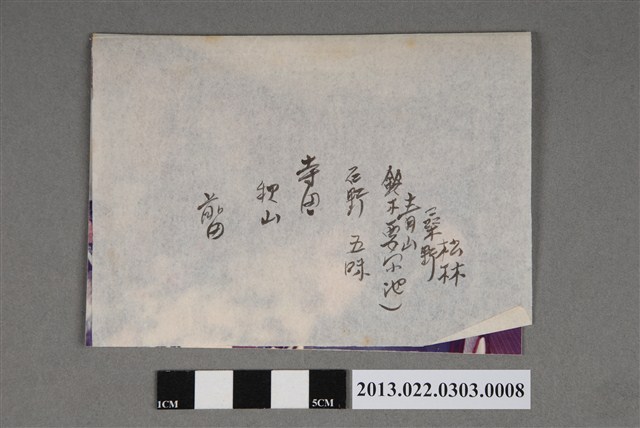 松林
桑野
青山
鈴木
石野 五味
寺田
秋山
前田
1CM
5CM
2013.022.0303.0008